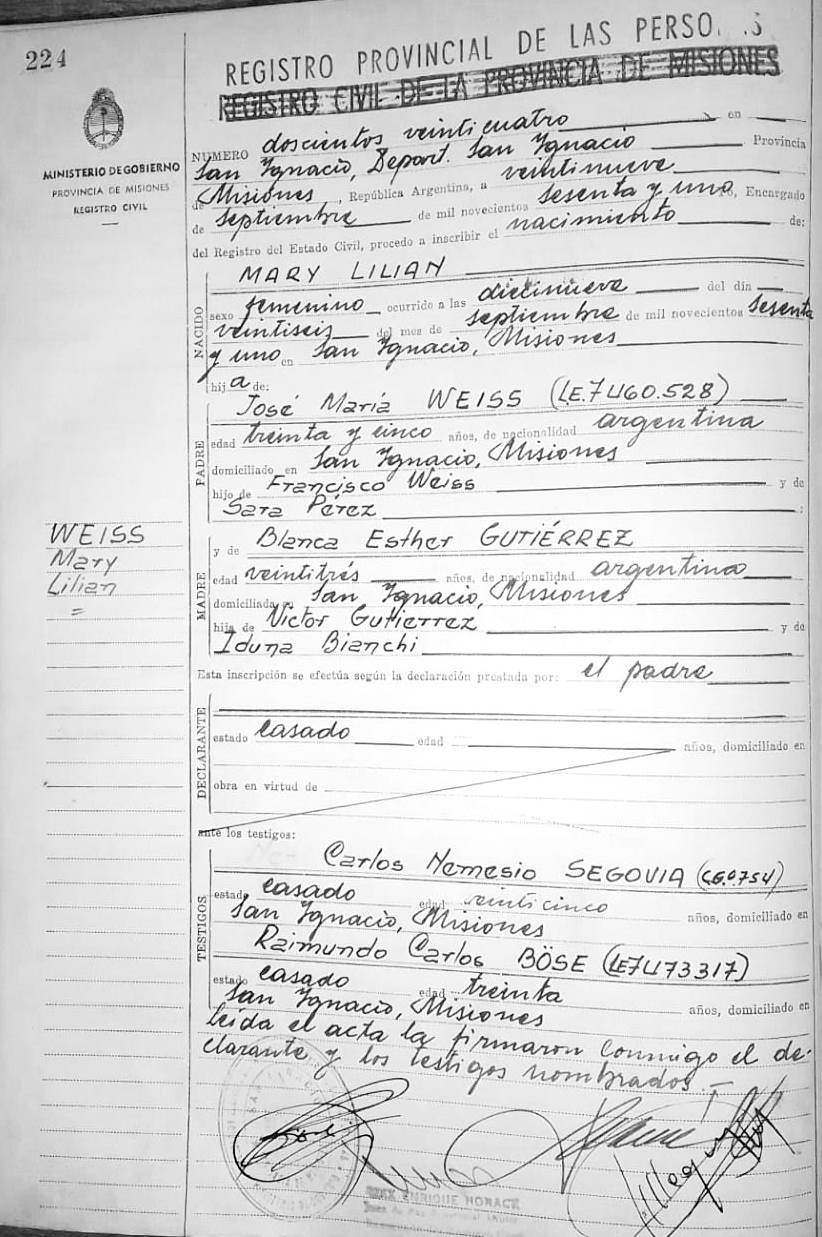 224
REGISTRO PROVINCIAL DE LAS PERSO
REGISTRO CIVIL DE LA PROVINCIA DE MISIONES
MINISTERIO DE GOBIERNO
PROVINCIA DE MISIONES
REGISTRO CIVIL
NUMERO doscientos veinticuatro en
San Ygnacio, Depart. San Ygnacio Provincia
de Misiones, República Argentina, a veintinueve
de septiembre de mil novecientos sesenta y uno, Encargado
del Registro del Estado Civil, procedo a inscribir el nacimiento de:
NACIDO
MARY LILIAN
sexo femenino ocurrido a las diecinueve del día
veintiseis del mes de septiembre de mil novecientos sesenta
y uno en San Ygnacio, Misiones
hija de:
PADRE
José María WEISS (LE.7460.528)
edad treinta y cinco años, de nacionalidad argentina
domiciliado en San Ygnacio, Misiones
hijo de Francisco Weiss y de
Sara Pérez ;
WEISS
Mary
Lilian
=
MADRE
y de Blanca Esther GUTIÉRREZ
edad veintitrés años, de nacionalidad argentina
domiciliada en San Ygnacio, Misiones
hija de Victor Gutierrez y de
Iduna Bianchi
Esta inscripción se efectúa según la declaración prestada por: el padre
DECLARANTE
estado casado edad años, domiciliado en
obra en virtud de
ante los testigos:
TESTIGOS
Carlos Nemesio SEGOVIA
estado casado edad veinticinco años, domiciliado en
San Ygnacio, Misiones
Raimundo Carlos BÖSE (LE7473317)
estado casado edad treinta años, domiciliado en
San Ygnacio, Misiones
Leida el acta la firmaron conmigo el de-
clarante y los testigos nombrados.-
ENRIQUE HORACK